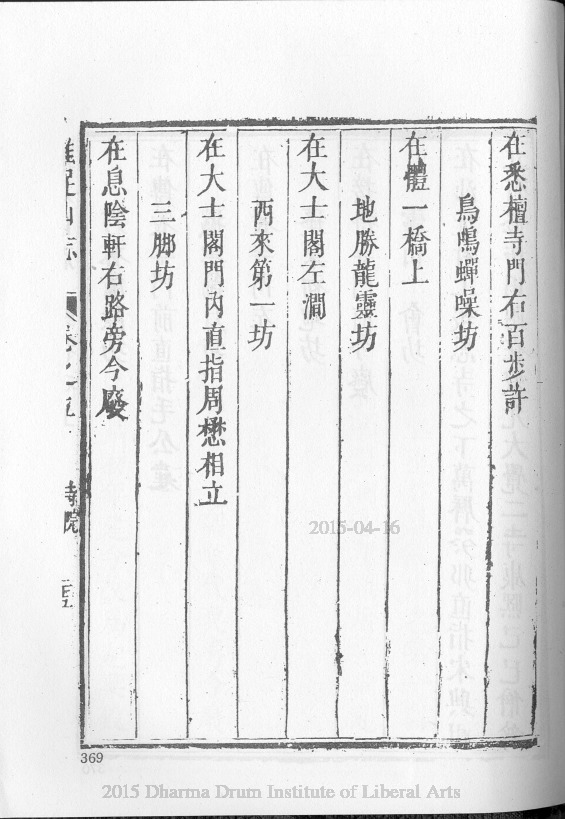 在悉檀寺門右百步許
鳥鳴蟬噪坊
在體一橋上
地勝龍靈坊
在大士閣左澗
西來第一坊
在大士閣門內直指周懋相立
三脚坊
在息陰軒右路旁今廢
山志
卷之五
寺院
2015-04-16
369
2015 Dharma Drum Institute of Liberal Arts